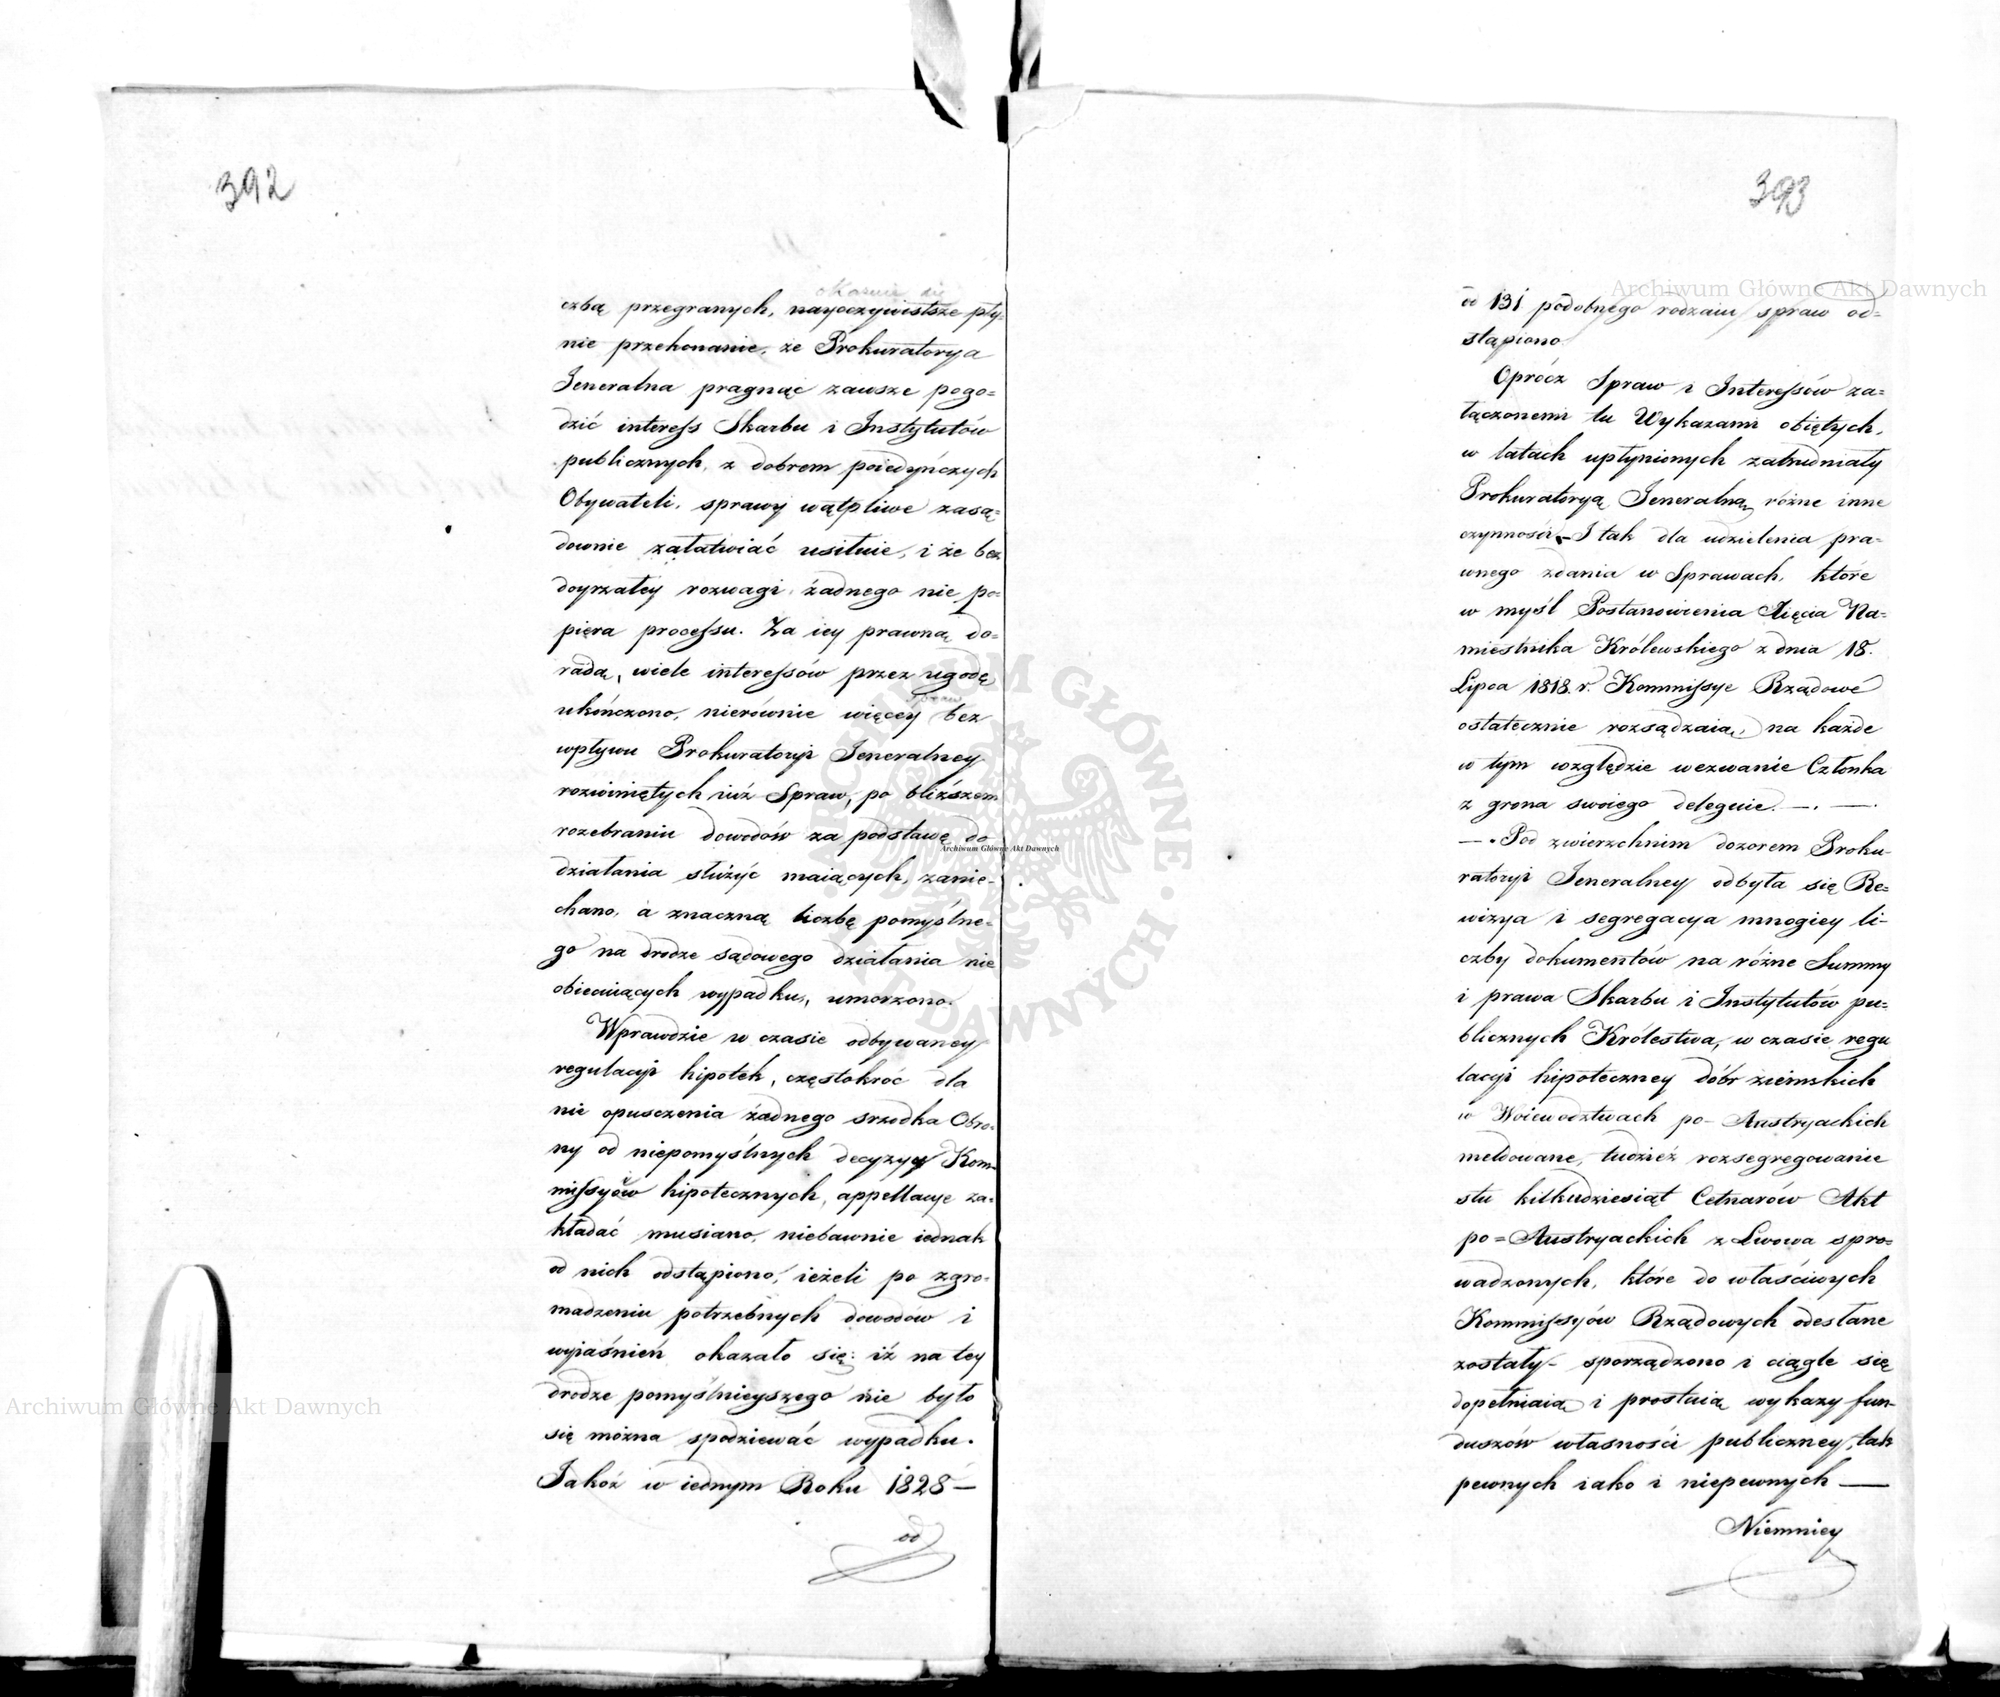 392
okazuie się
czbą przegranych, nayoczywistsze pły-
nie przekonanie, że Prokuratorya
Jeneralna pragnąc zawsze pogo-
dzić interess Skarbu i Instytutów
publicznych, z dobrem poiedyńczych
Obywateli, sprawy wątpliwe zasą-
downie załatwiać usiłuie, i że bez
doyrzałey rozwagi żadnego nie po-
piera processu. Za iey prawną do-
radą, wiele interessów przez ugodę
ukończono, nierównie więcey bez
wpływu Prokuratoryi Jeneralney
rozwiniętych iuż Spraw, po bliższem
rozebraniu dowodów za podstawę do
działania służyć maiących, zanie-
chano, a znaczną liczbę pomyślne-
go na drodze sądowego działania nie
obiecuiących wypadku, umorzono.
Wprawdzie w czasie odbywaney
regulacyi hipotek, częstokroć dla
nie opuszczenia żadnego srzodka Obro-
ny od niepomyślnych decyzyy Kom-
missyów hipotecznych, appellacye za-
kładać musiano, niebawnie iednak
od nich odstąpiono, ieżeli po zgro-
madzeniu potrzebnych dowodów i
wyiaśnień okazało się: iż na tey
drodze pomyślnieyszego nie było
się można spodziewać wypadku.
Jakoż w iednym Roku 1828 —
od
393
od 131 podobnego rodzaiu spraw od-
stąpiono
Oprócz Spraw i Interessów za-
łączonemi tu Wykazami obiętych,
w latach upłynionych zatrudniały
Prokuratoryą Jeneralną różne inne
czynności — I tak dla udzielenia pra-
wnego zdania w Sprawach, które
w myśl Postanowienia Xięcia Na-
miestnika Królewskiego z dnia 18.
Lipca 1818. r. Kommissye Rządowe
ostatecznie rozsądzaią, na każde
w tym względzie wezwanie Członka
z grona swoiego deleguie. —. —.
—. Pod zwierzchnim dozorem Proku-
ratoryi Jeneralney odbyła się Re-
wizya i segregacya mnogiey li-
czby dokumentów na różne Summy
i prawa Skarbu i Instytutów pu-
blicznych Królestwa, w czasie regu
lacyi hipoteczney dóbr ziemskich
w Woiewodztwach po-Austryackich
meldowane, tudzież rozsegregowanie
stu kilkudziesiąt Cetnarów Akt
po=Austryackich z Lwowa spro-
wadzonych, które do właściwych
Kommissyów Rządowych odesłane
zostały — sporządzono i ciągle się
dopełniaią i prostuią wykazy fun-
duszów własności publiczney, tak
pewnych iako i niepewnych —
Niemniey
Archiwum Główne Akt Dawnych
Archiwum Główne Akt Dawnych
Archiwum Główne Akt Dawnych
ARCHIWUM GŁÓWNE AKT DAWNYCH